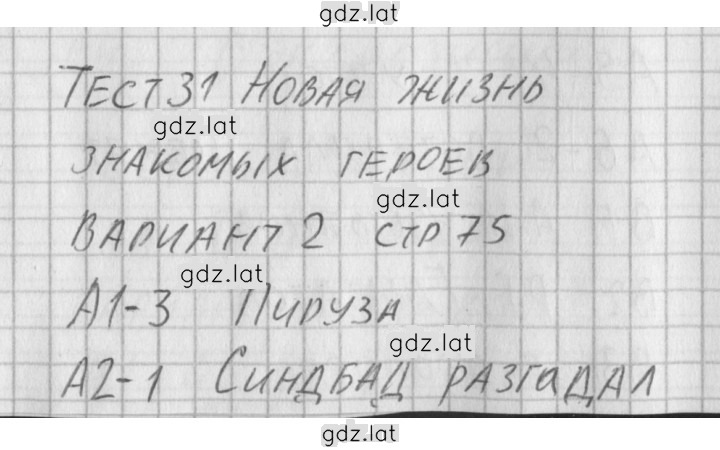 gdz.lat
Тест 31 Новая жизнь
gdz.lat
знакомых героев
gdz.lat
Вариант 2 стр 75
gdz.lat
А1-3 Пируза
gdz.lat
А2-1 Синдбад разгадал
gdz.lat